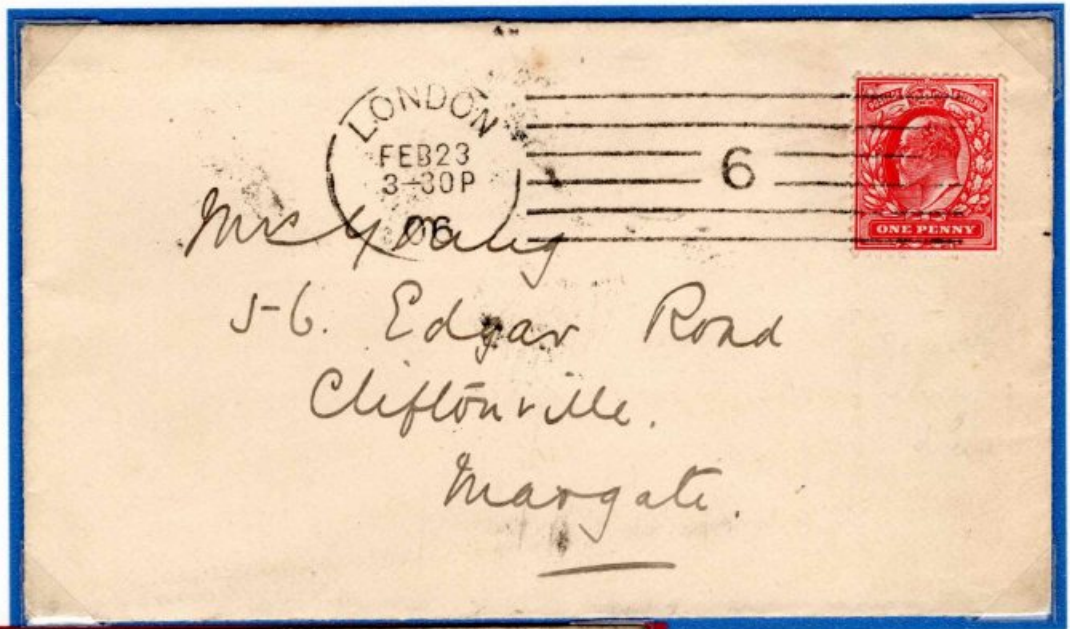 LONDON
FEB 23
3-30 P
06
6
POSTAGE & REVENUE
ONE PENNY
Mrs Young
56. Edgar Road
Cliftonville.
Margate.